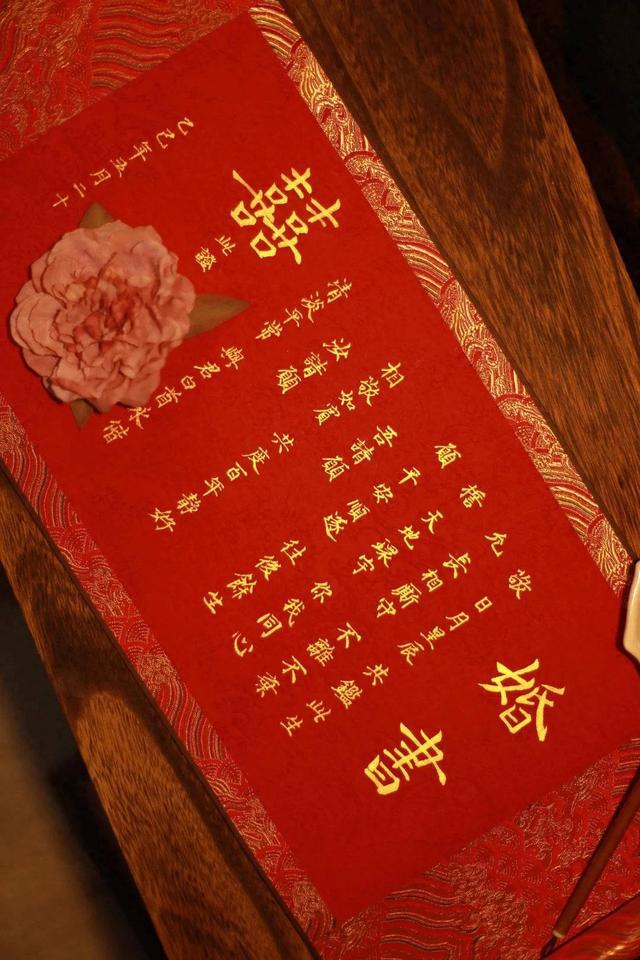 婚書
敬 日月星辰 共鑑此生
允 長相廝守 不離不棄
天地琛宇 你我同心
願 平安順遂 往後餘生
吾請願
相敬如賓 共度百年靜好
請願
清淡平常 與君白首永偕
此證
囍
乙巳年五月二十